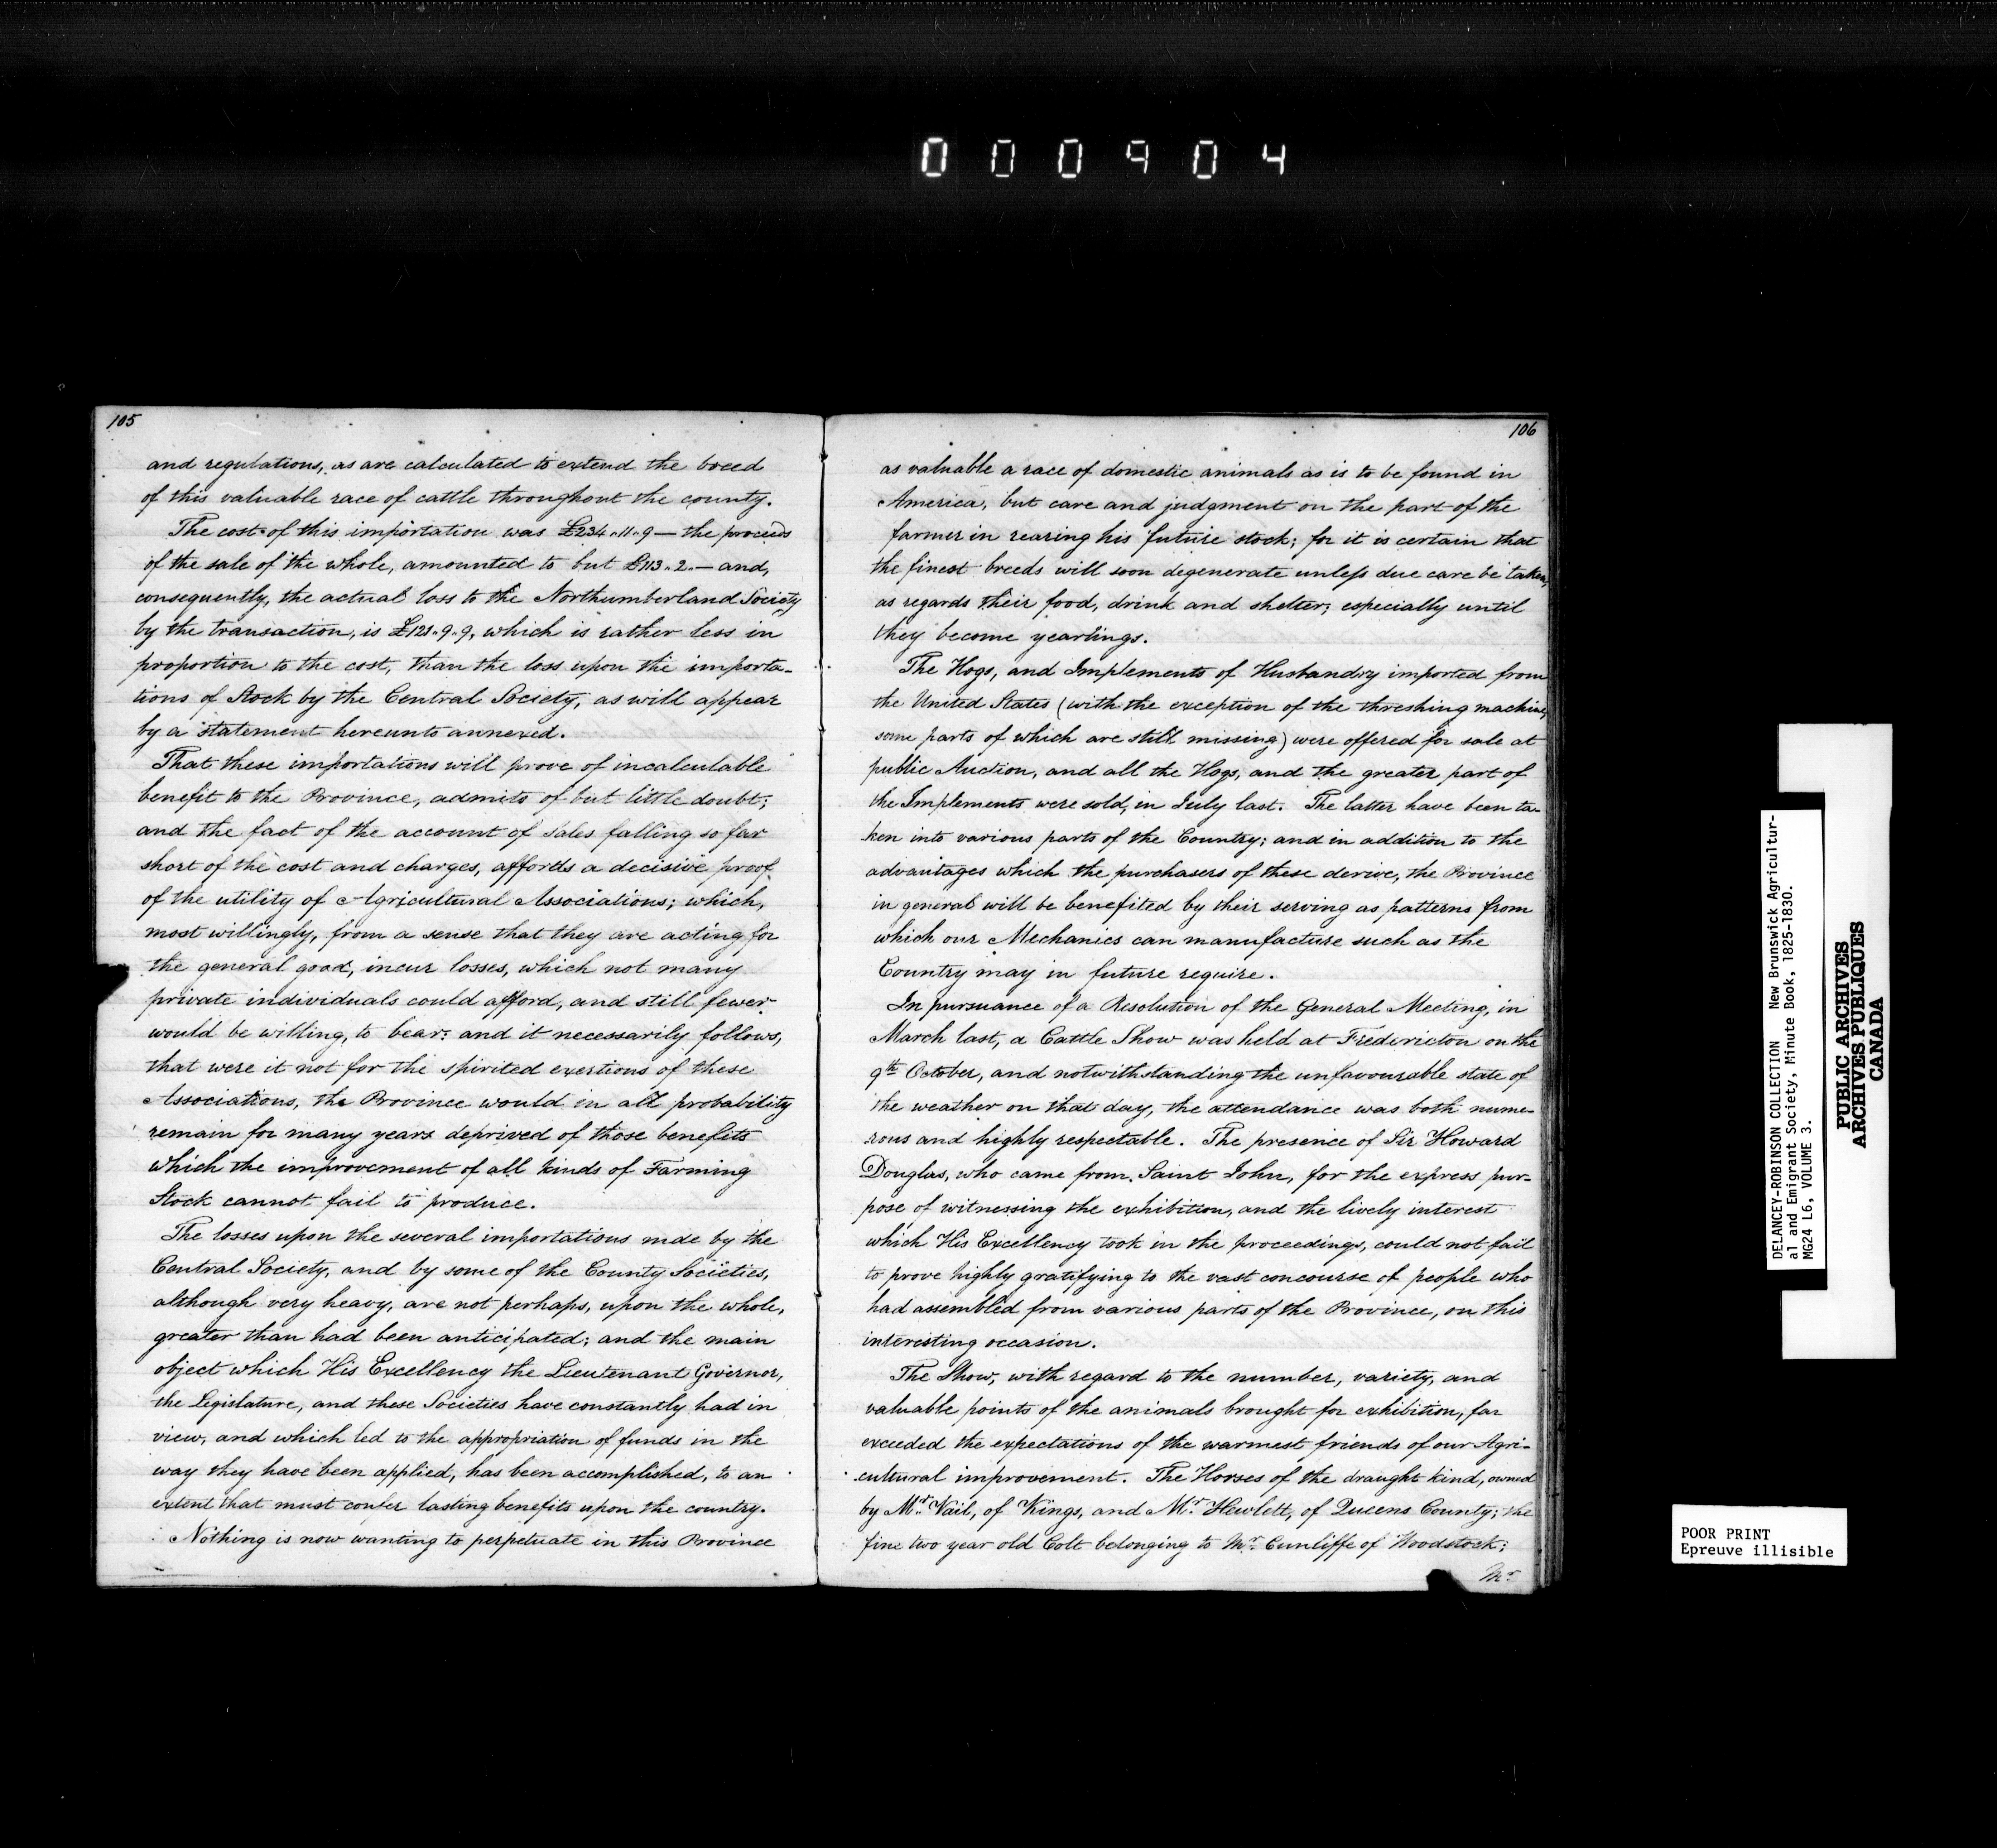 000904
105
and regulations, as are calculated to extend the breed
of this valuable race of cattle throughout the county.
The cost of this importation was £234..11..9 — the proceeds
of the sale of the whole, amounted to but £113..2.— and,
consequently, the actual loss to the Northumberland Society
by the transaction, is £121..9..9, which is rather less in
proportion to the cost, than the loss upon the importa-
tions of Stock by the Central Society, as will appear
by a statement hereunto annexed.
That these importations will prove of incalculable
benefit to the Province, admits of but little doubt;
and the fact of the account of Sales falling so far
short of the cost and charges, affords a decisive proof
of the utility of Agricultural Associations; which,
most willingly, from a sense that they are acting for
the general good, incur losses, which not many
private individuals could afford, and still fewer
would be willing, to bear: and it necessarily follows,
that were it not for the spirited exertions of these
Associations, the Province would in all probability
remain for many years deprived of those benefits
which the improvement of all kinds of Farming
Stock cannot fail to produce.
The losses upon the several importations made by the
Central Society, and by some of the County Societies,
although very heavy, are not perhaps, upon the whole,
greater than had been anticipated; and the main
object which His Excellency the Lieutenant Governor,
the Legislature, and these Societies have constantly had in
view, and which led to the appropriation of funds in the
way they have been applied, has been accomplished, to an
extent that must confer lasting benefits upon the country.
Nothing is now wanting to perpetuate in this Province
106
as valuable a race of domestic animals as is to be found in
America, but care and judgment on the part of the
farmer in rearing his future stock; for it is certain that
the finest breeds will soon degenerate unless due care be taken,
as regards their food, drink and shelter; especially until
they become yearlings.
The Hogs, and Implements of Husbandry imported from
the United States (with the exception of the threshing machine,
some parts of which are still missing) were offered for sale at
public Auction, and all the Hogs, and the greater part of
the Implements were sold, in July last. The latter have been ta-
ken into various parts of the Country; and in addition to the
advantages which the purchasers of these derive, the Province
in general will be benefited by their serving as patterns from
which our Mechanics can manufacture such as the
Country may in future require.
In pursuance of a Resolution of the General Meeting, in
March last, a Cattle Show was held at Fredericton on the
9th October, and notwithstanding the unfavourable state of
the weather on that day, the attendance was both nume-
rous and highly respectable. The presence of Sir Howard
Douglas, who came from Saint John, for the express pur-
pose of witnessing the exhibition, and the lively interest
which His Excellency took in the proceedings, could not fail
to prove highly gratifying to the vast concourse of people who
had assembled from various parts of the Province, on this
interesting occasion.
The Show, with regard to the number, variety, and
valuable points of the animals brought for exhibition, far
exceeded the expectations of the warmest friends of our Agri-
cultural improvement. The Horses of the draught kind, owned
by Mr. Vail, of Kings, and Mr. Hewlett, of Queens County; the
fine two year old Colt belonging to Mr. Cunliffe of Woodstock;
Mr.
DELANCEY-ROBINSON COLLECTION New Brunswick Agricultur-
al and Emigrant Society, Minute Book, 1825-1830.
MG24 L6, VOLUME 3.
PUBLIC ARCHIVES
ARCHIVES PUBLIQUES
CANADA
POOR PRINT
Epreuve illisible